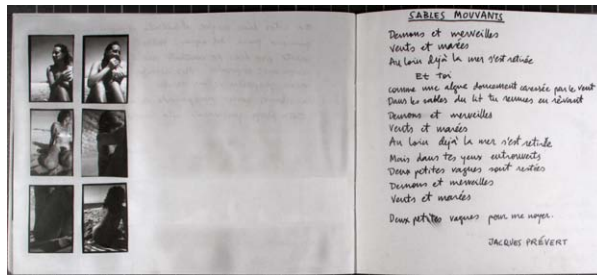 SABLES MOUVANTS
Demons et merveilles
Vents et marées
Au loin dejà la mer s'est retirée
Et toi
comme une algue doucement caressée par le vent
Dans les sables du lit tu remues en rêvant
Demons et merveilles
Vents et marées
Au loin dejà la mer s'est retirée
Mais dans tes yeux entrouverts
Deux petites vagues sont restées
Demons et merveilles
Vents et marées
Deux petites vagues pour me noyer.
JACQUES PRÉVERT